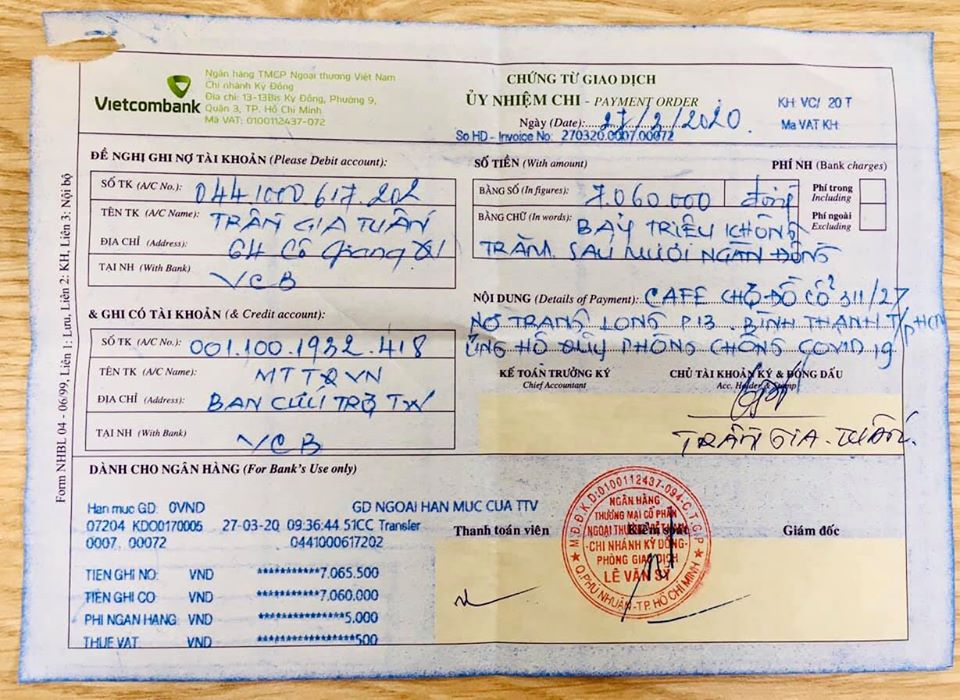 Vietcombank
Ngân hàng TMCP Ngoại thương Việt Nam
Chi nhánh Kỳ Đồng
Địa chỉ: 13-13Bis Kỳ Đồng, Phường 9,
Quận 3, TP. Hồ Chí Minh
Mã VAT: 0100112437-072
CHỨNG TỪ GIAO DỊCH
ỦY NHIỆM CHI - PAYMENT ORDER
Ngày (Date): 27/3/2020
So HD - Invoice No: 270320.0007.00072
KH VC/ 20 T
Ma VAT KH:
Form NHBL 04 - 06/99, Liên 1: Lưu, Liên 2: KH, Liên 3: Nội bộ
ĐỀ NGHỊ GHI NỢ TÀI KHOẢN (Please Debit account):
SỐ TK (A/C No.): 044.1000.617.202
TÊN TK (A/C Name): TRẦN GIA TUẤN
ĐỊA CHỈ (Address): 64 Cô Giang
TẠI NH (With Bank) VCB
& GHI CÓ TÀI KHOẢN (& Credit account):
SỐ TK (A/C No.): 001.100.1932.418
TÊN TK (A/C Name): MTTQVN
ĐỊA CHỈ (Address): BAN CỨU TRỢ TW
TẠI NH (With Bank) VCB
SỐ TIỀN (With amount)
PHÍ NH (Bank charges)
BẰNG SỐ (In figures): 7.060.000 đồng
Phí trong
Including
BẰNG CHỮ (In words): BẢY TRIỆU KHÔNG
TRĂM SÁU MƯƠI NGÀN ĐỒNG
Phí ngoài
Excluding
NỘI DUNG (Details of Payment): CAFE CHỢ ĐỒ CỔ 311/27
NƠ TRANG LONG P13 BÌNH THẠNH T/p HCM
ỦNG HỘ QUỸ PHÒNG CHỐNG COVID 19
KẾ TOÁN TRƯỞNG KÝ
Chief Accountant
CHỦ TÀI KHOẢN KÝ & ĐÓNG DẤU
Acc. Holder & Stamp
TRẦN GIA TUẤN
DÀNH CHO NGÂN HÀNG (For Bank's Use only)
Han muc GD: 0VND GD NGOAI HAN MUC CUA TTV
07204 KDO0170005 27-03-20 09:36:44 51CC Transfer
0007. 00072 0441000617202
TIEN GHI NO: VND ***********7,065.500
TIEN GHI CO VND ***********7,060.000
PHI NGAN HANG: VND **************5.000
THUE VAT VND ****************500
Thanh toán viên
Kiểm soát
Giám đốc
M.S.Đ.K.D:0100112437-094-C.T.CP
NGÂN HÀNG
THƯƠNG MẠI CỔ PHẦN
-CHI NHÁNH KỲ ĐỒNG-
PHÒNG GIAO DỊCH
LÊ VĂN SỸ
Q.PHÚ NHUẬN-TP.HỒ CHÍ MINH